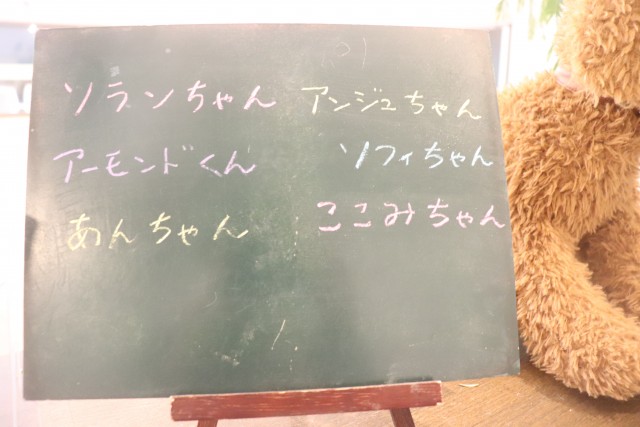 ソランちゃん
アンジュちゃん
アーモンドくん
ソフィちゃん
あんちゃん
ここみちゃん